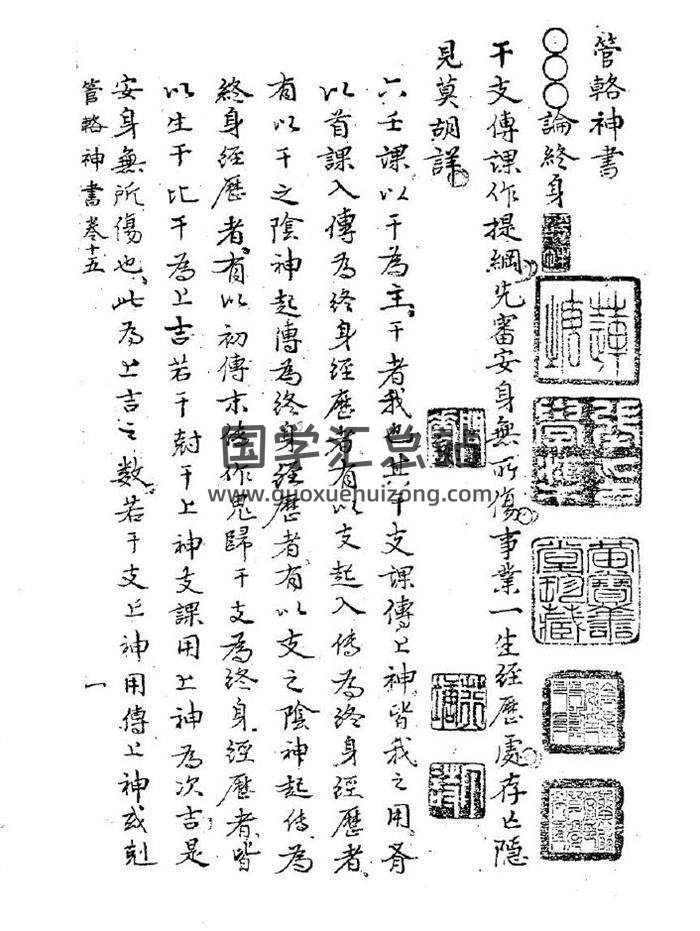 管輅神書
○○○論終身
干支傳課作提綱先審安身無所傷事業一生經歷處存亡隱
見莫胡詳
六壬課以干為主干者我也其干支課傳上神皆我之用有
以首課入傳為終身經歷者有以支起入傳為終身經歷者
有以干之陰神起傳為終身經歷者有以支之陰神起傳為
終身經歷者有以初傳末傳作鬼歸干支為終身經歷者皆
以生干比干為上吉若干尅干上神支課用上神為次吉是
安身無所傷也此為上吉之數若干支上神用傳上神或剋
管輅神書卷十五
一
黃寶善
堂珍藏
国学汇总站
www.guoxuehuizong.com